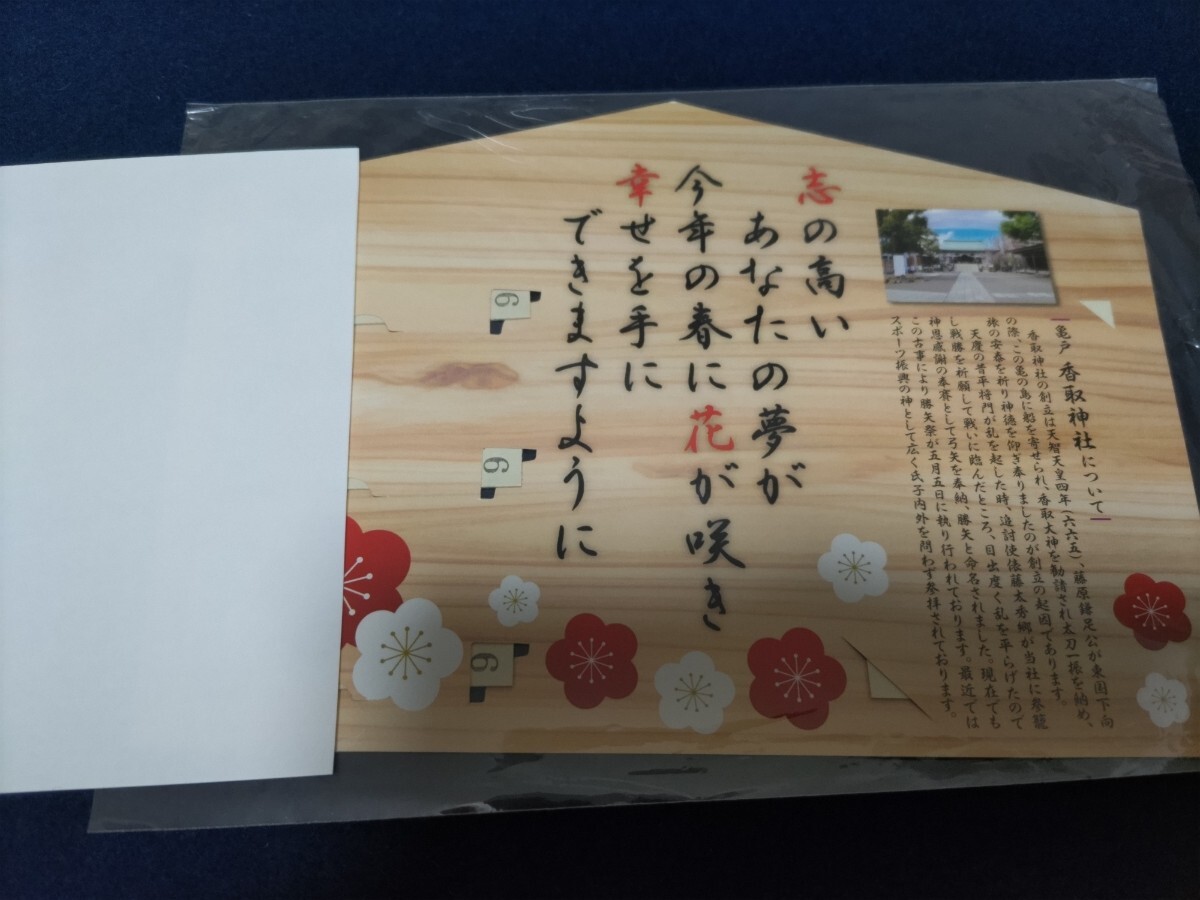 亀戸 香取神社について
香取神社の創立は天智天皇四年(六六五)、藤原鎌足公が東国下向
の際、この亀の島に船を寄せられ、香取大神を勧請され太刀一振を納め、
旅の安泰を祈り神徳を仰ぎ奉りましたのが創立の起因であります。
天慶の昔平将門が乱を起した時、追討使俵藤太秀郷が当社に参籠
し戦勝を祈願して戦いに臨んだところ、目出度く乱を平らげたので
神恩感謝の奉賽として弓矢を奉納、勝矢と命名されました。現在でも
この古事により勝矢祭が五月五日に執り行われております。最近では
スポーツ振興の神として広く氏子内外を問わず参拝されております。
志の高い
あなたの夢が
今年の春に花が咲き
幸せを手に
できますように
6
6
6